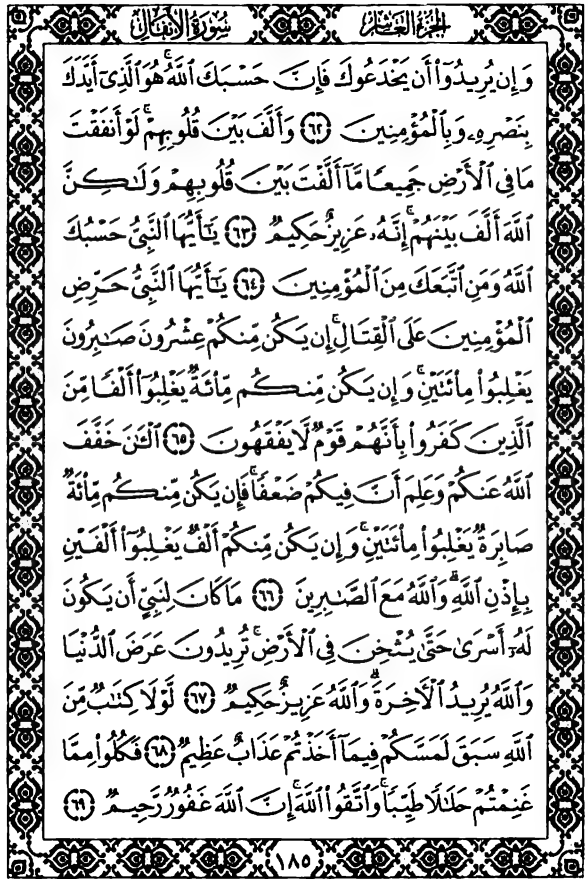 الجزء العاشر سورة الأنفال
وَإِن يُرِيدُوٓا۟ أَن يَخْدَعُوكَ فَإِنَّ حَسْبَكَ ٱللَّهُ ۚ هُوَ ٱلَّذِىٓ أَيَّدَكَ
بِنَصْرِهِۦ وَبِٱلْمُؤْمِنِينَ ۝٦٢ وَأَلَّفَ بَيْنَ قُلُوبِهِمْ ۚ لَوْ أَنفَقْتَ
مَا فِى ٱلْأَرْضِ جَمِيعًا مَّآ أَلَّفْتَ بَيْنَ قُلُوبِهِمْ وَلَـٰكِنَّ
ٱللَّهَ أَلَّفَ بَيْنَهُمْ ۚ إِنَّهُۥ عَزِيزٌ حَكِيمٌ ۝٦٣ يَـٰٓأَيُّهَا ٱلنَّبِىُّ حَسْبُكَ
ٱللَّهُ وَمَنِ ٱتَّبَعَكَ مِنَ ٱلْمُؤْمِنِينَ ۝٦٤ يَـٰٓأَيُّهَا ٱلنَّبِىُّ حَرِّضِ
ٱلْمُؤْمِنِينَ عَلَى ٱلْقِتَالِ ۚ إِن يَكُن مِّنكُمْ عِشْرُونَ صَـٰبِرُونَ
يَغْلِبُوا۟ مِا۟ئَتَيْنِ ۚ وَإِن يَكُن مِّنكُم مِّا۟ئَةٌ يَغْلِبُوٓا۟ أَلْفًا مِّنَ
ٱلَّذِينَ كَفَرُوا۟ بِأَنَّهُمْ قَوْمٌ لَّا يَفْقَهُونَ ۝٦٥ ٱلْـَٔـٰنَ خَفَّفَ
ٱللَّهُ عَنكُمْ وَعَلِمَ أَنَّ فِيكُمْ ضَعْفًا ۚ فَإِن يَكُن مِّنكُم مِّا۟ئَةٌ
صَابِرَةٌ يَغْلِبُوا۟ مِا۟ئَتَيْنِ ۚ وَإِن يَكُن مِّنكُمْ أَلْفٌ يَغْلِبُوٓا۟ أَلْفَيْنِ
بِإِذْنِ ٱللَّهِ ۗ وَٱللَّهُ مَعَ ٱلصَّـٰبِرِينَ ۝٦٦ مَا كَانَ لِنَبِىٍّ أَن يَكُونَ
لَهُۥٓ أَسْرَىٰ حَتَّىٰ يُثْخِنَ فِى ٱلْأَرْضِ ۚ تُرِيدُونَ عَرَضَ ٱلدُّنْيَا
وَٱللَّهُ يُرِيدُ ٱلْـَٔاخِرَةَ ۗ وَٱللَّهُ عَزِيزٌ حَكِيمٌ ۝٦٧ لَّوْلَا كِتَـٰبٌ مِّنَ
ٱللَّهِ سَبَقَ لَمَسَّكُمْ فِيمَآ أَخَذْتُمْ عَذَابٌ عَظِيمٌ ۝٦٨ فَكُلُوا۟ مِمَّا
غَنِمْتُمْ حَلَـٰلًا طَيِّبًا ۚ وَٱتَّقُوا۟ ٱللَّهَ ۚ إِنَّ ٱللَّهَ غَفُورٌ رَّحِيمٌ ۝٦٩
١٨٥